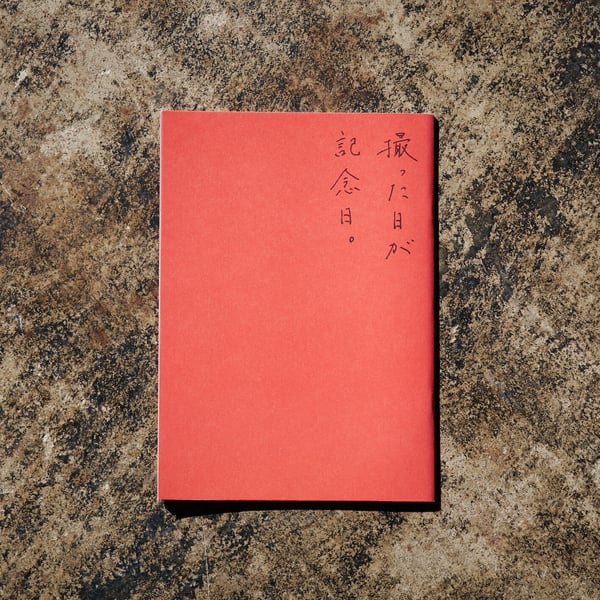 撮った日が
記念日。